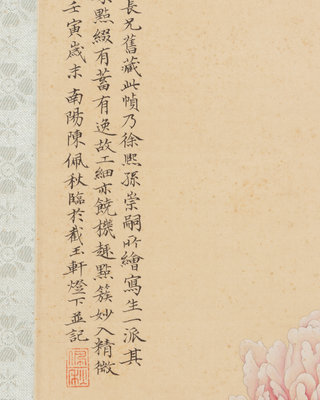 長兄舊藏此幀乃徐熙孫崇嗣所繪寫生一派其
點綴有蓄有逸故工細亦饒機趣點簇妙入精微
壬寅歲末南陽陳佩秋臨於截玉軒燈下並記